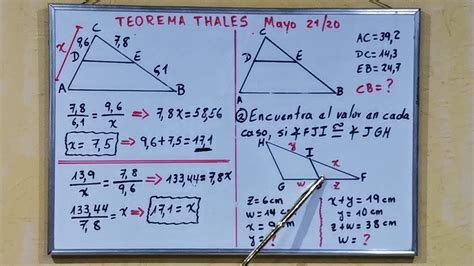 TEOREMA THALES Mayo 21/20
C
9,6
7,8
x
D
E
6,1
A
B
7,8/6,1 = 9,6/x ⇒ 7,8x = 58,56
x = 7,5 ⇒ 9,6+7,5 = 17,1
13,9/x = 7,8/9,6 ⇒ 133,44 = 7,8x
133,44/7,8 = x ⇒ 17,1 = x
C
D
E
A
B
AC = 39,2
DC = 14,3
EB = 24,7
CB = ?
② Encuentra el valor en cada
caso, si ∡FJI ≅ ∡JGH
H
y
I
x
G
w
z
F
z = 6cm
w = 14cm
x = 9cm
y = ?
x+y = 19cm
y = 10cm
z+w = 38cm
w = ?